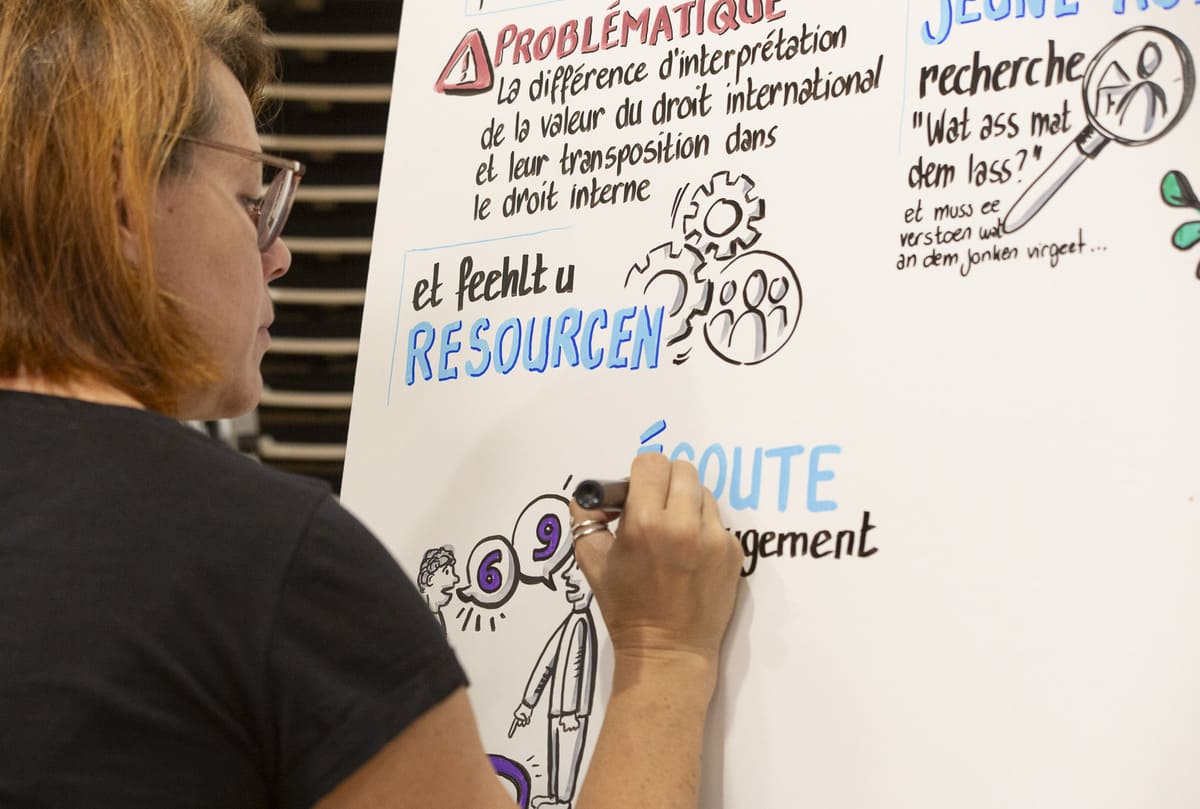 PROBLÉMATIQUE
La différence d'interprétation
de la valeur du droit international
et leur transposition dans
le droit interne
et feehlt u
RESOURCEN
6 9
ÉCOUTE
recherche
"Wat ass mat
dem lass?"
et muss ee
verstoen wat
an dem Jonken virgeet...